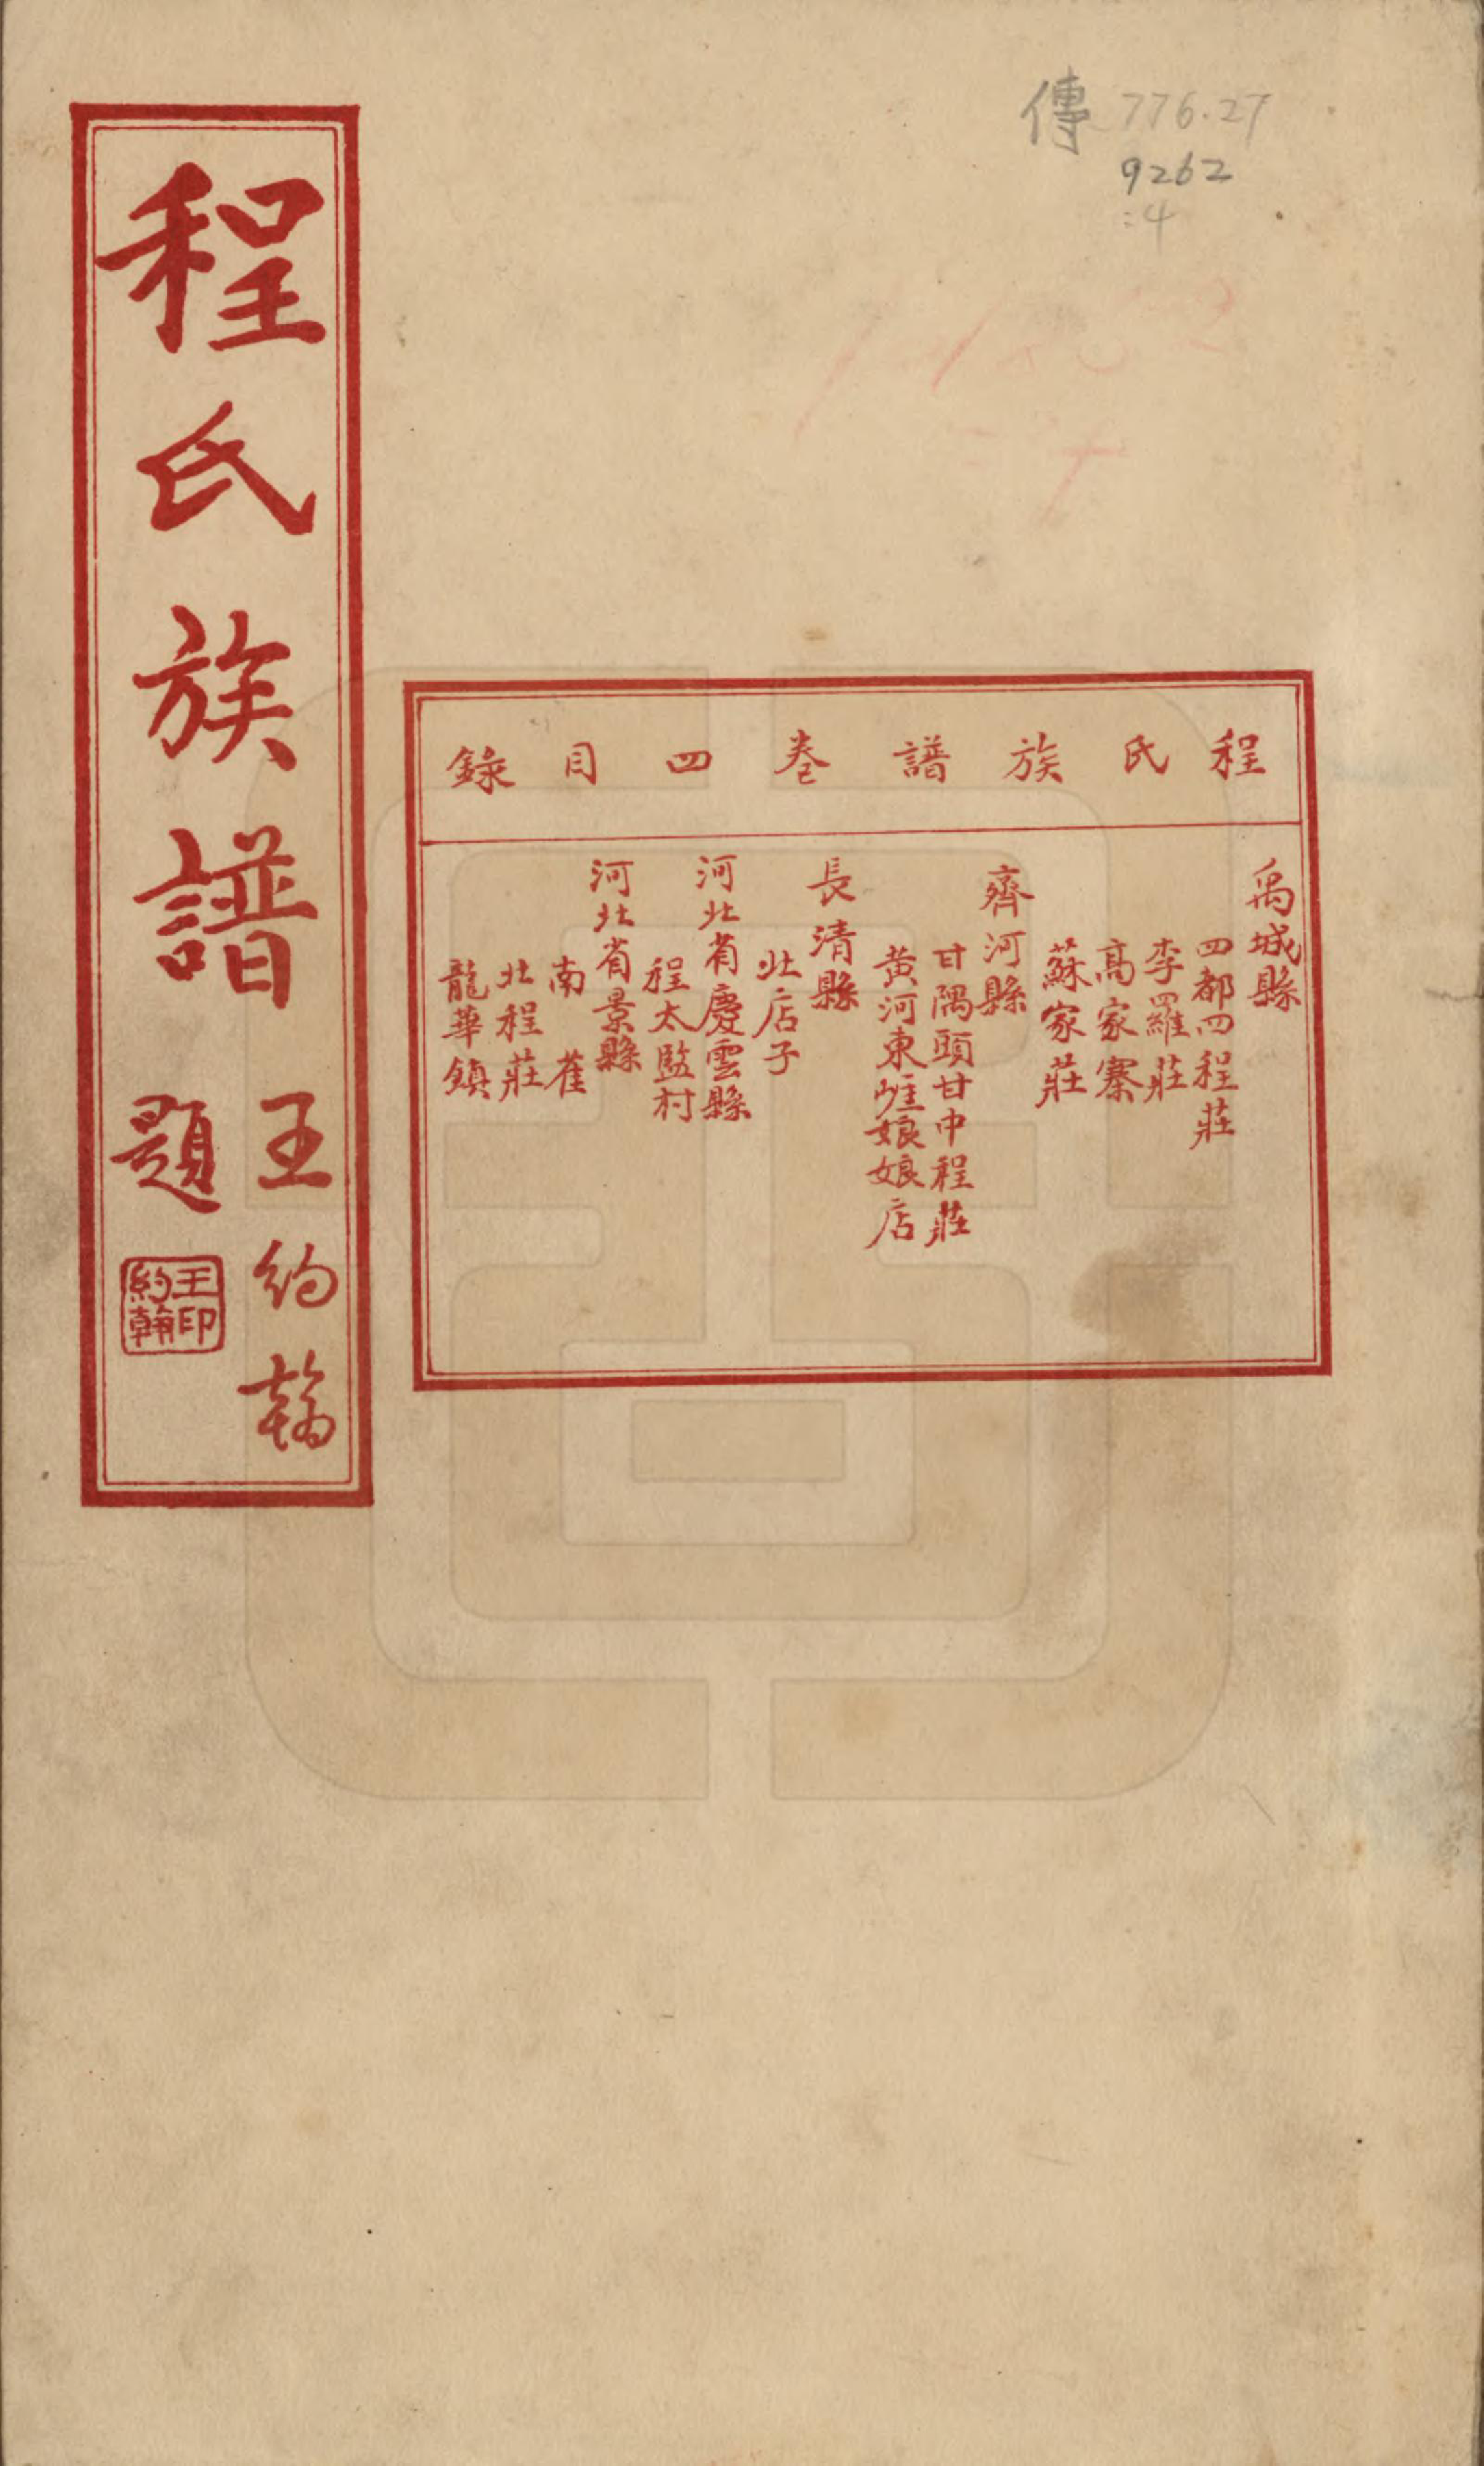 傳 776.27
9262
:4
程氏族譜卷四目錄
禹城縣
四都四程莊
李羅莊
高家寨
蘇家莊
齊河縣
甘隅頭甘中程莊
黄河東崕娘娘店
長清縣
北店子
河北省慶雲縣
程太監村
河北省景縣
南 萑
北程莊
龍華鎮
程氏族譜
王約翰
題
王印
約翰